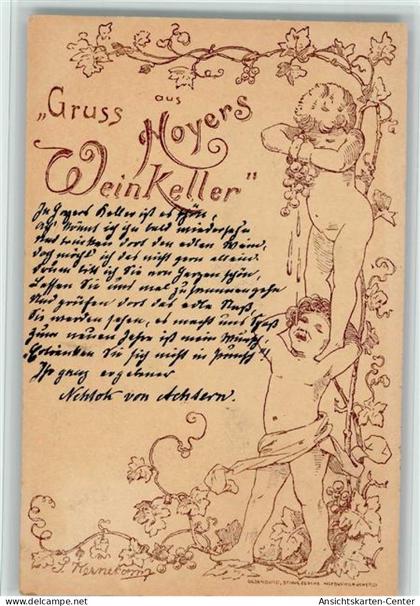 „Gruss aus
Hoyers
WeinKeller“
In Hoyers Keller ist es schön,
Ach könnt ich Sie bald wiedersehn
Und trinken dort den edlen Wein,
doch möcht ich das nicht gern allein.
Drum bitt ich Sie von Herzen schön,
Lassen Sie uns mal zusammengehn
Und prüfen dort das edle Naß,
Sie werden sehen, es macht uns Spaß
Zum neuen Jahre ist mein Wunsch,
„Betrinken Sie sich nicht in Punsch“!
Ihr ganz ergebner
von Achtern.
OLDENBURG,
www.ansichtskarten-center.de
Ansichtskarten-Center.com